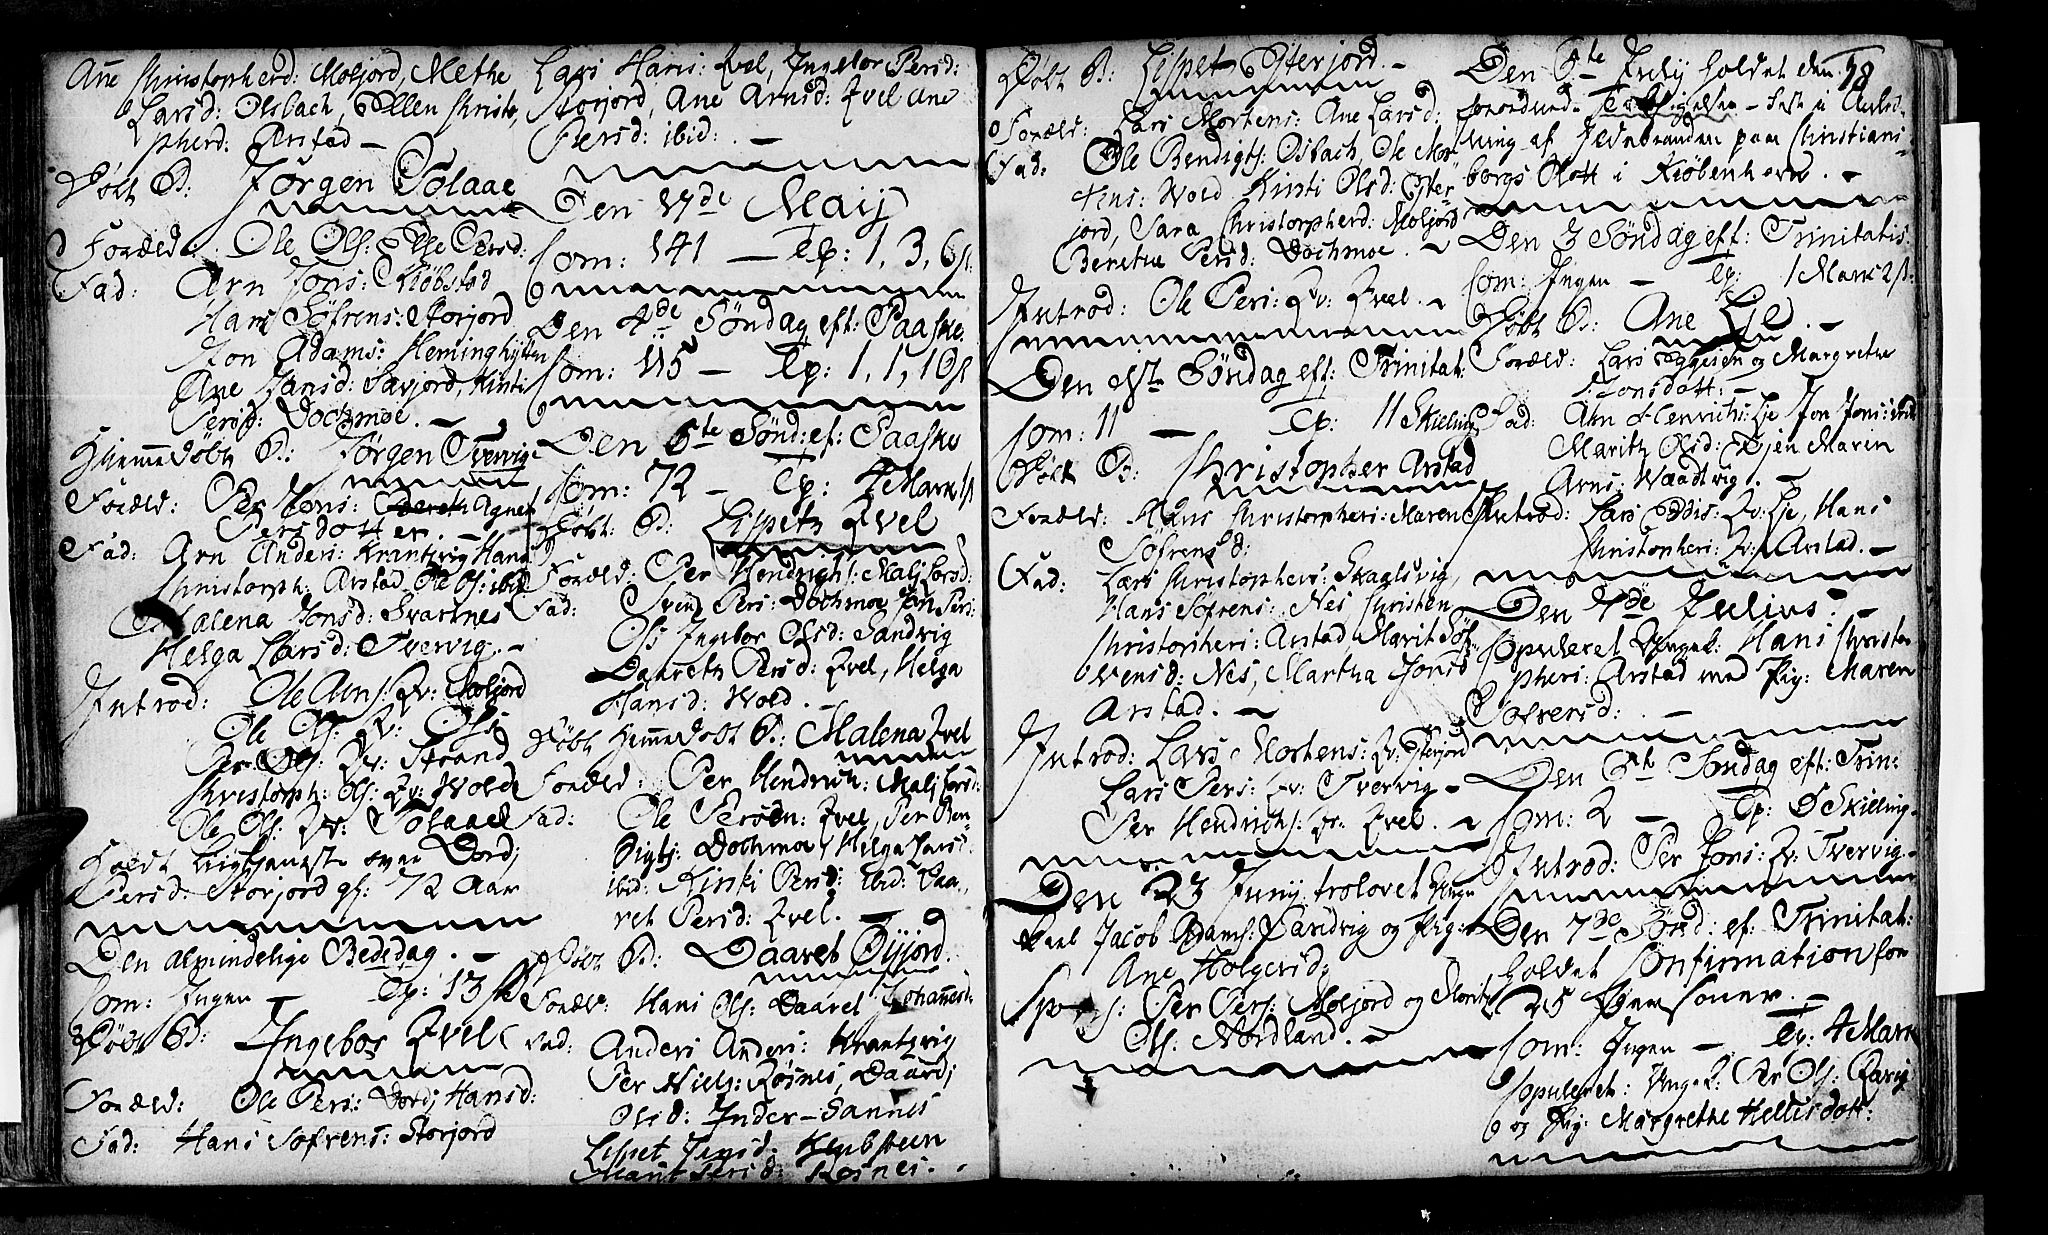 Añe Christopherd: Moljord, Methe
Larsd: Olsbach, Ellen Christo,
pherd: Arstad —
Døbt B: Jørgen Solaae
Foræld: Ole Ols: Else Persd:
Fad: Arn Jons: Kiøbstad
Hans Søfrens: Storjord
Jon Adams: Heminghytten
Ane Hansd: Savjord, Kirsti
Persd: Dochmoe. —
Hiemedøbt B: Jørgen Tvervig
Foræld: Per Jons: Agnet
Persdotter. —
Fad: Arn Anders: Krantzvig Hans
Christoph: Arstad Ole Ols: ibid
Malena Jonsd: Svartnes
Helga Larsd: Tvervig. —
Introd: Ole Arns: Qv: Moljord
Ole Ols: Qv: Ols
Per Ols: Qv: Strand
Christoph: Ols: Qv: Wold
Ole Ols: Qv: Solaae
Holdt Liigtjeneste over Dordj
Persd: Storjord gl: 72 Aar
Den almindelige Bededag. —
Com: Ingen — Tp: 13 ß
Døbt B: Ingebor Evel
Foræld: Ole Pers: Dordj Hansd:
Fad: Hans Sofrens: Storjord
Lars Hans: Evel, Ingebor Persd:
Storjord, Ane Arnsd: Evel Ane
Persd: ibid: —
Den 17de Maij
Com: 141 — Tp: 1, 3, 6 ß
Den 4de Søndag eft: Paaske
Com: 115 — Tp: 1, 1, 10 ß
Den 5te Sønd: ef: Paaske
Com: 72 — Tp: 4 Mark 1 ß
Døbt: B: Lispeth Evel
Foræld: Per Hendrichs: Malj Larsd:
Fad: Svend Pers: Dochmoe Jon Pers:
Ols Ingebor Olsd: Sandvig
Daareth Persd: Evel, Helga
Hansd: Wold. —
Døbt Hiemmedøbt B: Malena Evel
Foræld: Per Hendrich: Malj Larsd:
Fad: Ole Persøen: Evel, Per Ben-
digtz: Dochmoe, Helga Hansd:
ibid: Kirsti Persd: Ibid: Daa-
ret Persd: Evel. —
Døbt B: Daaret Øyjord.
Foræld: Hans Ols: Daaret Johannesd:
Fad: Anders Anders: Krantzvig
Per Niels: Røsnes, Daardj
Olsd: Inder-Sannes
Lisbet Jensd: Klubsteen
Marit Persd: Røsnes.
18
Døbt B: Lispet Ytterjord. —
Foræld: Lars Mortens: Ane Larsd:
Fad: Ole Bendigtz: Osbach, Ole Mor-
tens: Wold Kirsti Olsd: Ytter-
jord, Sara Christopherd: Moljord
Beretha Persd: Dochmoe. —
Introd: Ole Pers: Qv: Evel. —
Den 1ste Søndag eft: Trinitat:
Com: 11 — Tp: 11 Skilling
Døbt B: Christopher Arstad
Foræld: Hans Christophers: Maren
Søfrensd:
Fad: Lars Christophers: Skaglsvig,
Hans Søfrens: Nes Christen
Christophers: Arstad Marit Søf-
rensd: Nes, Martha Jonsd
Arstad. —
Introd: Lars Mortens: Qv: Ytterjord
Lars Pers: Qv: Tvervig —
Per Hendrichs: Qv: Evel. —
Den 23 Junij trolovet Unge
Karl Jacob Adams: Sandvig og Pig:
Ane Holgersd:
Per Pers: Moljord og Marit
Ols: Nordland. —
Den 5te Julij holdet den
forordnede Taksigelses-Fest i Anled-
ning af Ildebranden paa Christians-
borgs Slott i Kiøbenhavn. —
Den 3 Søndag eft: Trinitatis.
Com: Ingen — Tp: 1 Mark 2 ß.
Døbt B: Ane Lje. —
Foræld: Lars Eggesen og Margrethe
Jonsdott: —
Fad: Arn Henrichs: Lje Jon Jons: ibid
Marith Olsd: Marin
Arns: Waadtvig. —
Introd: Lars Qv: Lje, Hans
Christophers: Qv: Arstad. —
Den 4de Julius.
Copuleret Ungel: Hans Christo-
phers: Arstad med Pig: Maren
Sofrensd: —
Den 6te Søndag eft: Trin:
Com: 2 — Tp: 8 Skilling.
Introd: Per Jons: Qv: Tvervig. —
Den 7de Sønd: ef: Trinitat:
holdet Confirmation for
25 Personer. —
Com: Ingen — Tp: 4 Mark
Copuleret: Unge K: Per Ols:
og Pig: Margrethe Hellesdott: